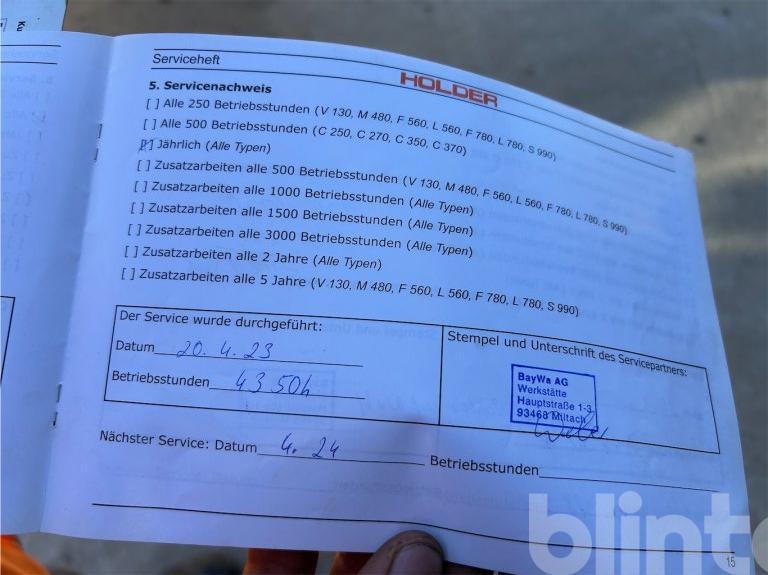 Serviceheft
HOLDER
5. Servicenachweis
[ ] Alle 250 Betriebsstunden (V 130, M 480, F 560, L 560, F 780, L 780, S 990)
[ ] Alle 500 Betriebsstunden (C 250, C 270, C 350, C 370)
[ ] Jährlich (Alle Typen)
[ ] Zusatzarbeiten alle 500 Betriebsstunden (V 130, M 480, F 560, L 560, F 780, L 780, S 990)
[ ] Zusatzarbeiten alle 1000 Betriebsstunden (Alle Typen)
[ ] Zusatzarbeiten alle 1500 Betriebsstunden (Alle Typen)
[ ] Zusatzarbeiten alle 3000 Betriebsstunden (Alle Typen)
[ ] Zusatzarbeiten alle 2 Jahre (Alle Typen)
[ ] Zusatzarbeiten alle 5 Jahre (V 130, M 480, F 560, L 560, F 780, L 780, S 990)
Der Service wurde durchgeführt:
Datum 20.4.23
Betriebsstunden 4350h
Stempel und Unterschrift des Servicepartners:
BayWa AG
Werkstätte
Hauptstraße 1-3
93468 Miltach
Nächster Service: Datum 4.24 Betriebsstunden
15
blinto